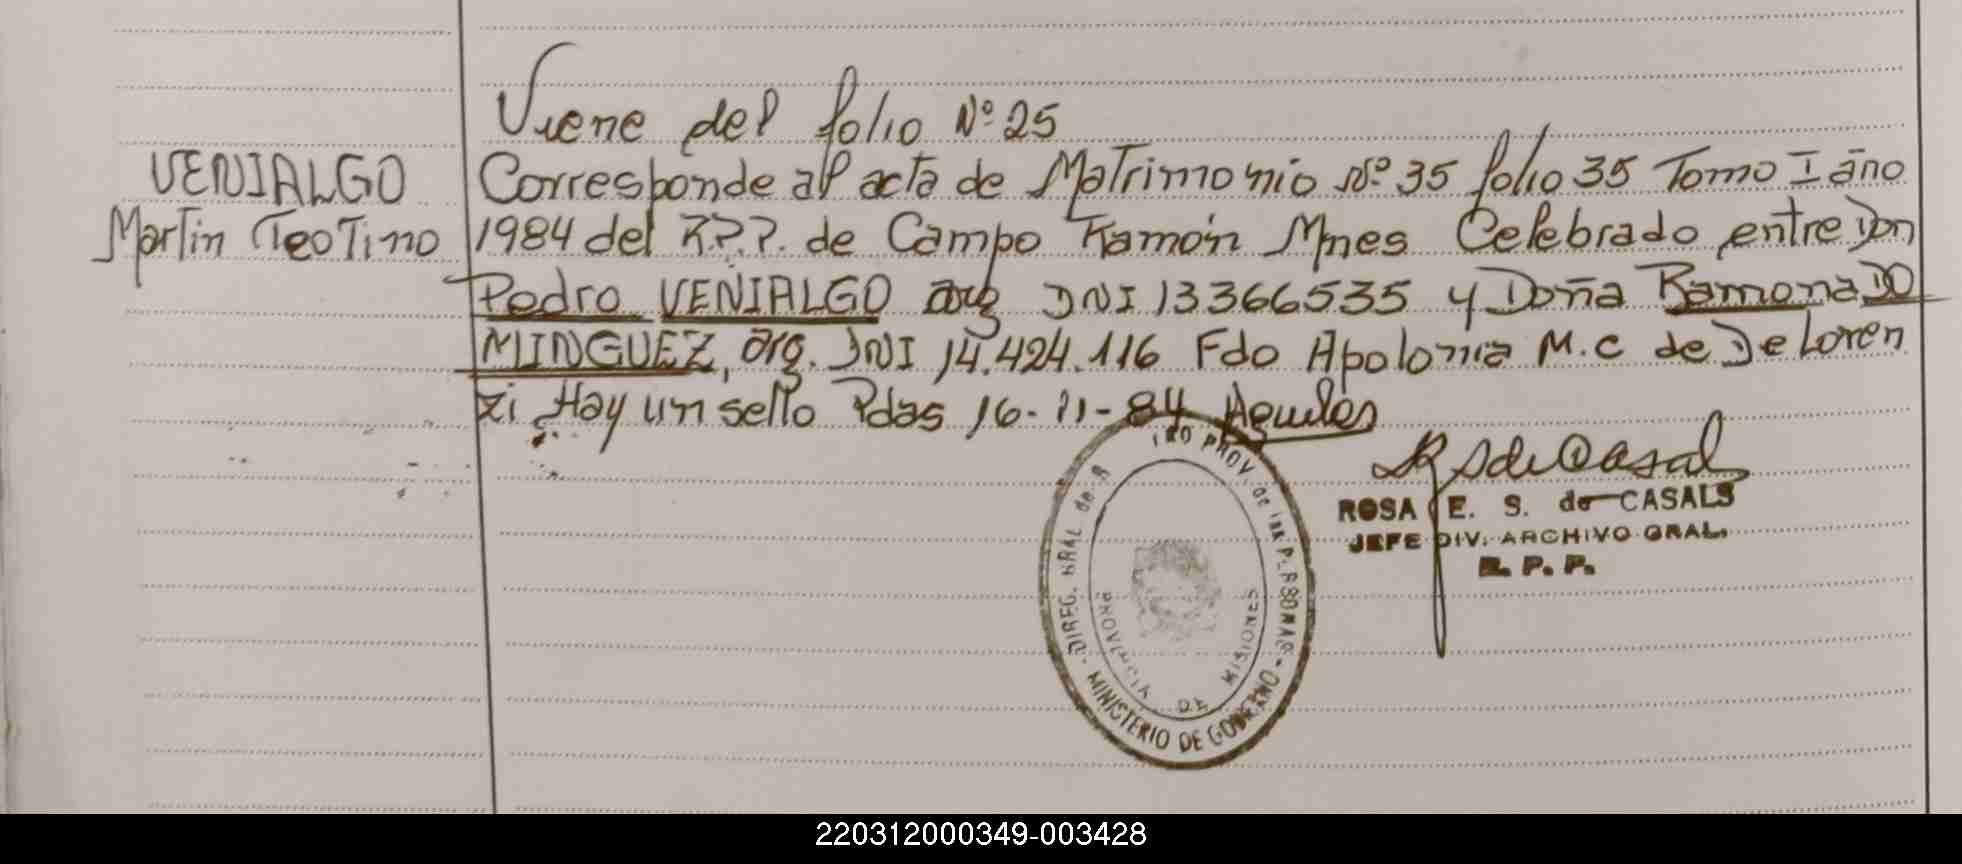 Viene del folio Nº 25
VENIALGO
Martin Teotino
Corresponde al acta de Matrimonio Nº 35 folio 35 Tomo I año
1984 del R.P.P. de Campo Ramón Mnes Celebrado entre Don
Pedro VENIALGO arg DNI 13366535 y Doña Ramona DO
MINGUEZ, arg. DNI 14.424.116 Fdo Apolonia M.C de De Loren
zi Hay un sello Pdas 16-11-84
ROSA E. S. de CASALS
JEFE DIV. ARCHIVO GRAL.
R. P. P.
DIREG. GRAL de R PROV. de las PERSONAS
MINISTERIO DE GOBIERNO
PROVINCIA DE MISIONES
220312000349-003428